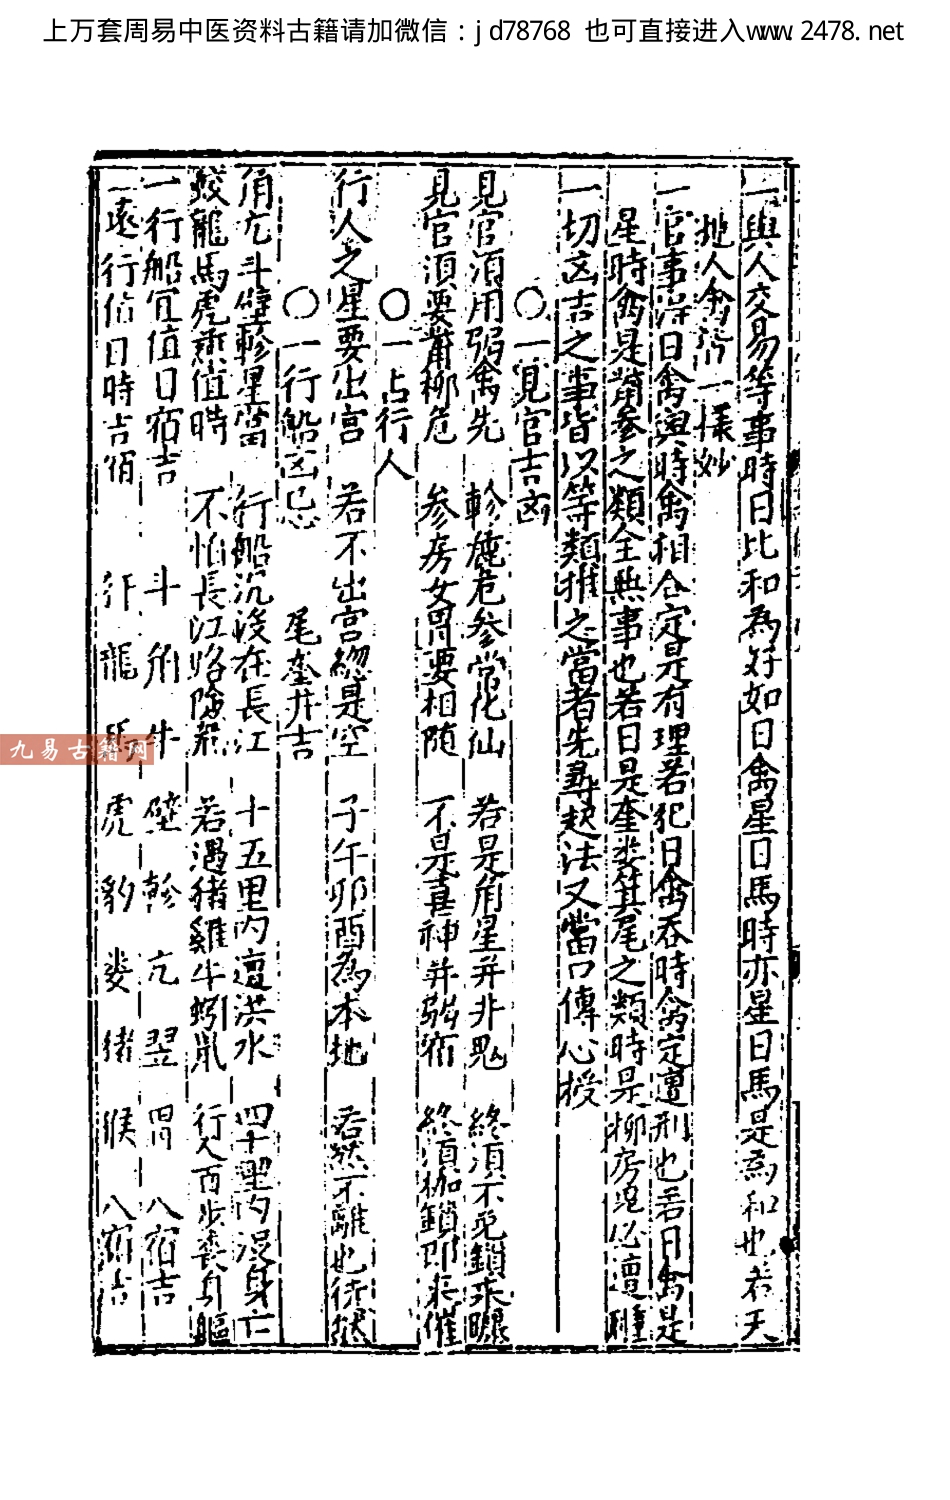 上万套周易中医资料古籍请加微信：jd78768 也可直接进入www.2478.net
一與人交易等事時日比和為好如日禽星日馬時亦星日馬是為和也若天
地人禽皆一樣妙
一官事洋日禽與時禽相合定是有理若犯日禽吞時禽定遭刑也若日禽是
星時禽是觜參之類全無事也若日是奎婁箕尾之類時是柳房之必遭
一切凶吉之事皆以等類推之當者先尋起法又當口傳心授
〇一見官吉凶
見官須用弱禽先 軫鹿危參常化仙 若是角星并非鬼 終須不免鎖來
見官須要觜柳危 参房女胃要相随 不是喜神并弱宿 終須枷鎖即来催
〇一占行人
行人之星要出宫 若不出宫總是空 子午卯酉為本地 若然不離也待
〇一行船凶忌 尾奎井吉
角亢斗壁軫星當 行船沉没在長江 十五里内遭洪水 四十里内没身亡
蛟龍馬虎並值時 不怕長江路險 若遇猪雞牛蚓鼠 行人百步喪身軀
一行船宜值日宿吉 斗角牛壁軫亢翌胃八宿吉
一遠行值日時吉宿 龍馬虎豹婁猪猴八宿吉
九易古籍网